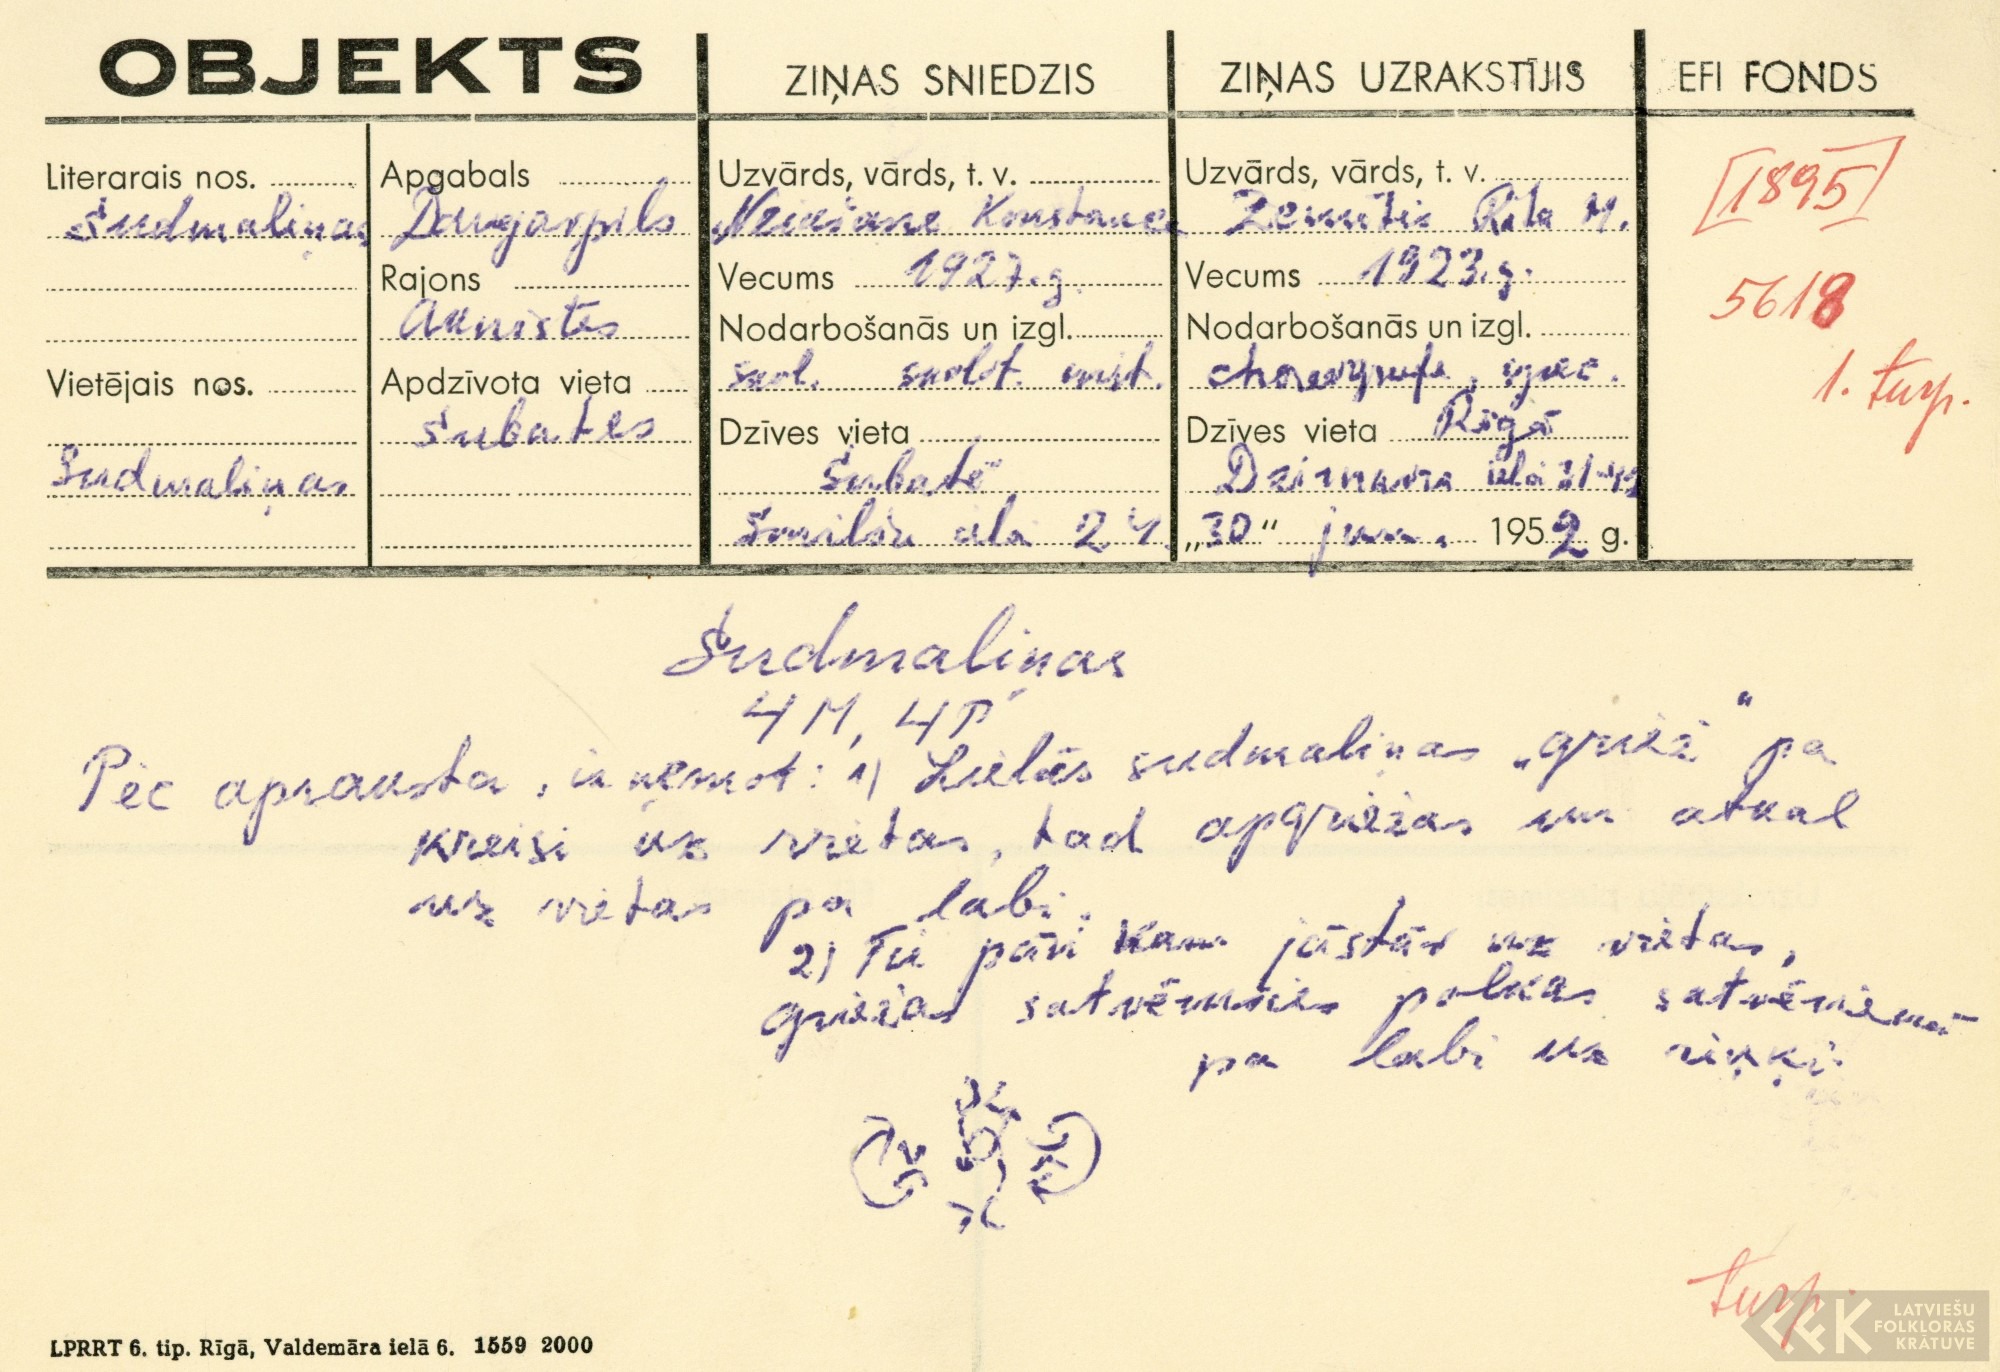 OBJEKTS
ZIŅAS SNIEDZIS
ZIŅAS UZRAKSTĪJIS
EFI FONDS
Literarais nos.
Sudmaliņas
Vietējais nos.
Sudmaliņas
Apgabals
Daugavpils
Rajons
Aknīstes
Apdzīvota vieta
Subates
Uzvārds, vārds, t. v.
Konstance
Vecums 1927. g.
Nodarbošanās un izgl.
skol. skolot. inst.
Dzīves vieta
Subatē
Smilšu ielā 24.
Uzvārds, vārds, t. v.
Zemītis Rita M.
Vecums 1923. g.
Nodarbošanās un izgl.
choreografe, spec.
Dzīves vieta Rīgā
Dzirnavu ielā
„30" jun. 1952 g.
[1895]
5618
1. turp.
Sudmaliņas
4 M, 4 P
Pēc apraksta, izņemot: 1) Lielās sudmaliņas „griež" pa
kreisi uz vietas, tad apgriežas un atkal
uz vietas pa labi.
2) Tie pāri kam jāstāv uz vietas,
griežas satvērušies polkas satvērienā
pa labi uz riņķi.
turp.
LPRRT 6. tip. Rīgā, Valdemāra ielā 6. 1559 2000
LATVIEŠU
FOLKLORAS
KRĀTUVE